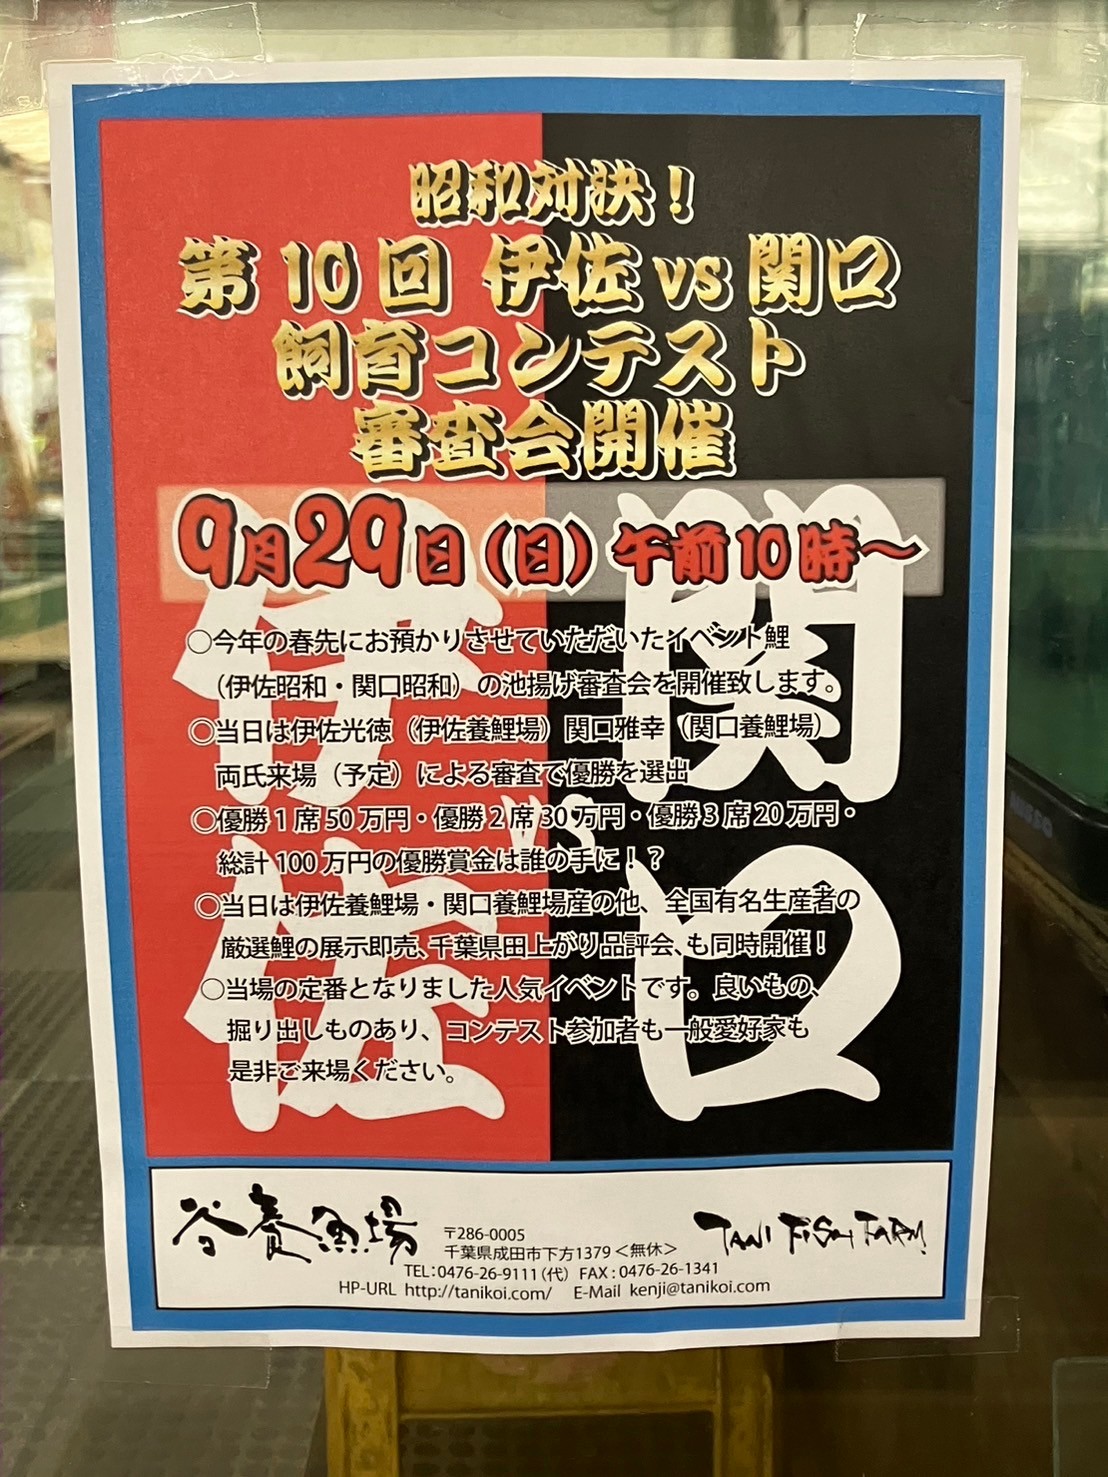 昭和対決！
第10回 伊佐vs関口
飼育コンテスト
審査会開催
9月29日（日）午前10時～
伊佐 vs 関口
○今年の春先にお預かりさせていただいたイベント鯉
（伊佐昭和・関口昭和）の池揚げ審査会を開催致します。
◎当日は伊佐光徳（伊佐養鯉場）関口雅幸（関口養鯉場）
両氏来場（予定）による審査で優勝を選出
◎優勝1席50万円・優勝2席30万円・優勝3席20万円・
総計100万円の優勝賞金は誰の手に！？
◎当日は伊佐養鯉場・関口養鯉場産の他、全国有名生産者の
厳選鯉の展示即売、千葉県田上がり品評会、も同時開催！
○当場の定番となりました人気イベントです。良いもの、
掘り出しものあり、コンテスト参加者も一般愛好家も
是非ご来場ください。
谷養魚場
〒286-0005
千葉県成田市下方1379＜無休＞
TANI FISH FARM
TEL：0476-26-9111（代） FAX：0476-26-1341
HP-URL http://tanikoi.com/ E-Mail kenji@tanikoi.com